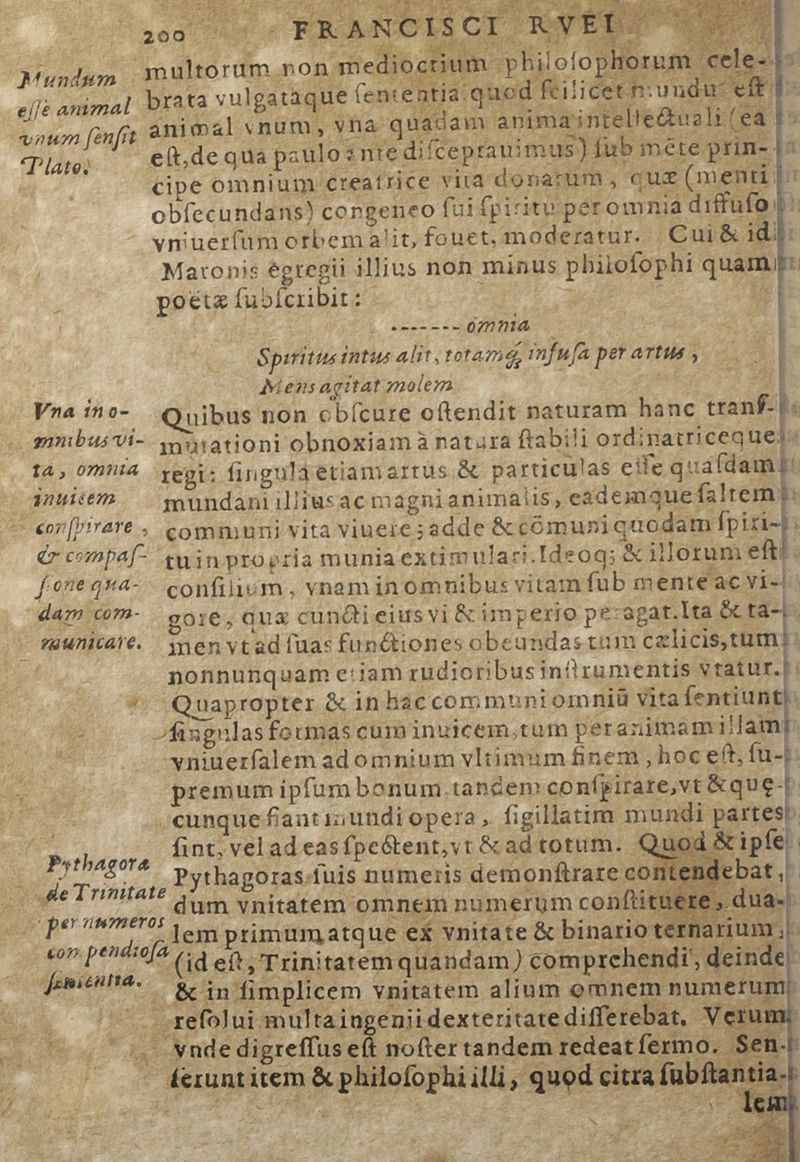 200 FRANCISCI RVEI
Mundum
esse animal
vnum sensit
Plato.
multorum non mediocrium philosophorum cele-
brata vulgataque sententia quod scilicet mundus est
animal vnum, vna quadam anima intellectuali (ea
est, de qua paulo ante disceptauimus) sub mēte prin-
cipe omnium creatrice vita donatum, quæ (menti
obsecundans) congeneo sui spiritu per omnia diffuso
vniuersum orbem alit, fouet, moderatur. Cui & id
Maronis egregii illius non minus philosophi quam
poëtæ subscribit:
------- omnia
Spiritus intus alit, totamq; infusa per artus,
Mens agitat molem
Vna in o-
mnibus vi-
ta, omnia
inuicem
conspirare,
& compas-
sione qua-
dam com-
municare.
Quibus non obscure ostendit naturam hanc trans-
mutationi obnoxiam à natura stabili ordinatriceque
regi: singula etiam artus & particulas esse quasdam
mundani illius ac magni animalis, eademque saltem
communi vita viuere; adde & cōmuni quodam spiri-
tu in propria munia extimulari. Ideoq; & illorum est
consilium, vnam in omnibus vitam sub mente ac vi-
gore, quæ cuncti eius vi & imperio peragat. Ita & ta-
men vt ad suas functiones obeundas tum cælicis, tum
nonnunquam etiam rudioribus instrumentis vtatur.
Quapropter & in hac communi omniū vita sentiunt
singulas formas cum inuicem, tum per animam illam
vniuersalem ad omnium vltimum finem, hoc est, su-
premum ipsum bonum tandem conspirare, vt & quę-
cunque fiant mundi opera, sigillatim mundi partes
sint, vel ad eas spectent, vt & ad totum. Quod & ipse
Pythagoras suis numeris demonstrare contendebat,
dum vnitatem omnem numerum constituere, dua-
lem primum atque ex vnitate & binario ternarium
(id est, Trinitatem quandam) comprehendi, deinde
& in simplicem vnitatem alium omnem numerum
resolui multa ingenii dexteritate disserebat. Verum
vnde digressus est noster tandem redeat sermo. Sen-
serunt item & philosophi illi, quod citra substantia-
lem
Pythagoræ
de Trinitate
per numeros
compendiosa
sententia.